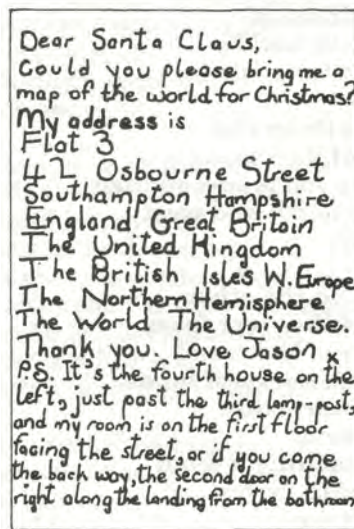 Dear Santa Claus,
Could you please bring me a
map of the world for Christmas?
My address is
Flat 3
42 Osbourne Street
Southampton Hampshire
England Great Britain
The United Kingdom
The British Isles W. Europe
The Northern Hemisphere
The World The Universe.
Thank you. Love Jason x
P.S. It's the fourth house on the
left, just past the third lamp-post,
and my room is on the first floor
facing the street, or if you come
the back way, the second door on the
right along the landing from the bathroom